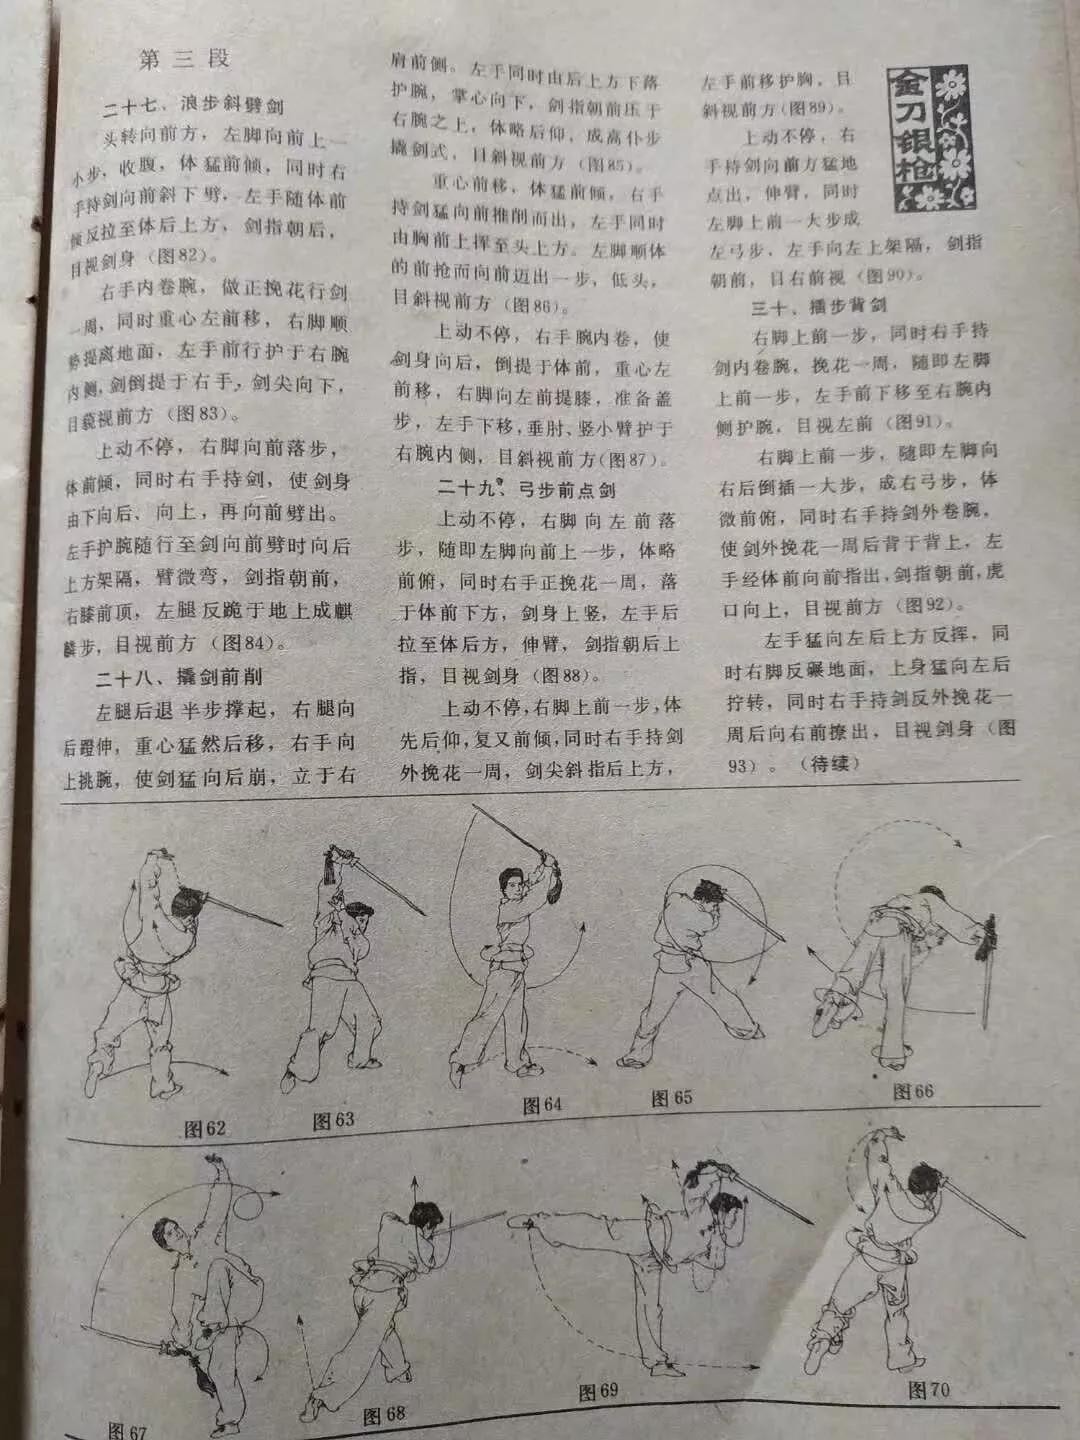 第三段
二十七、浪步斜劈剑
头转向前方，左脚向前上一
小步，收腹，体猛前倾，同时右
手持剑向前斜下劈，左手随体前
倾反拉至体后上方，剑指朝后，
目视剑身（图82）。
右手内卷腕，做正挽花行剑
一周，同时重心左前移，右脚顺
势提离地面，左手前行护于右腕
内侧，剑倒提于右手，剑尖向下，
目藐视前方（图83）。
上动不停，右脚向前落步，
体前倾，同时右手持剑，使剑身
由下向后、向上，再向前劈出。
左手护腕随行至剑向前劈时向后
上方架隔，臂微弯，剑指朝前，
右膝前顶，左腿反跪于地上成麒
麟步，目视前方（图84）。
二十八、撬剑前削
左腿后退半步撑起，右腿向
后蹬伸，重心猛然后移，右手向
上挑腕，使剑猛向后崩，立于右
肩前侧。左手同时由后上方下落
护腕，掌心向下，剑指朝前压于
右腕之上，体略后仰，成高仆步
撬剑式，目斜视前方（图85）。
重心前移，体猛前倾，右手
持剑猛向前推削而出，左手同时
由胸前上挥至头上方。左脚顺体
的前抢而向前迈出一步，低头，
目斜视前方（图86）。
上动不停，右手腕内卷，使
剑身向后，倒提于体前，重心左
前移，右脚向左前提膝，准备盖
步，左手下移，垂肘、竖小臂护于
右腕内侧，目斜视前方（图87）。
二十九、弓步前点剑
上动不停，右脚向左前落
步，随即左脚向前上一步，体略
前俯，同时右手正挽花一周，落
于体前下方，剑身上竖，左手后
拉至体后方，伸臂，剑指朝后上
指，目视剑身（图88）。
上动不停，右脚上前一步，体
先后仰，复又前倾，同时右手持剑
外挽花一周，剑尖斜指后上方，
左手前移护胸，目
斜视前方（图89）。
上动不停，右
手持剑向前方猛地
点出，伸臂，同时
左脚上前一大步成
左弓步，左手向左上架隔，剑指
朝前，目右前视（图90）。
三十、插步背剑
右脚上前一步，同时右手持
剑内卷腕，挽花一周，随即左脚
上前一步，左手前下移至右腕内
侧护腕，目视左前（图91）。
右脚上前一步，随即左脚向
右后倒插一大步，成右弓步，体
微前俯，同时右手持剑外卷腕，
使剑外挽花一周后背于背上，左
手经体前向前指出，剑指朝前，虎
口向上，目视前方（图92）。
左手猛向左后上方反挥，同
时右脚反碾地面，上身猛向左后
拧转，同时右手持剑反外挽花一
周后向右前撩出，目视剑身（图
93）。（待续）
金刀银枪
图62
图63
图64
图65
图66
图67
图68
图69
图70